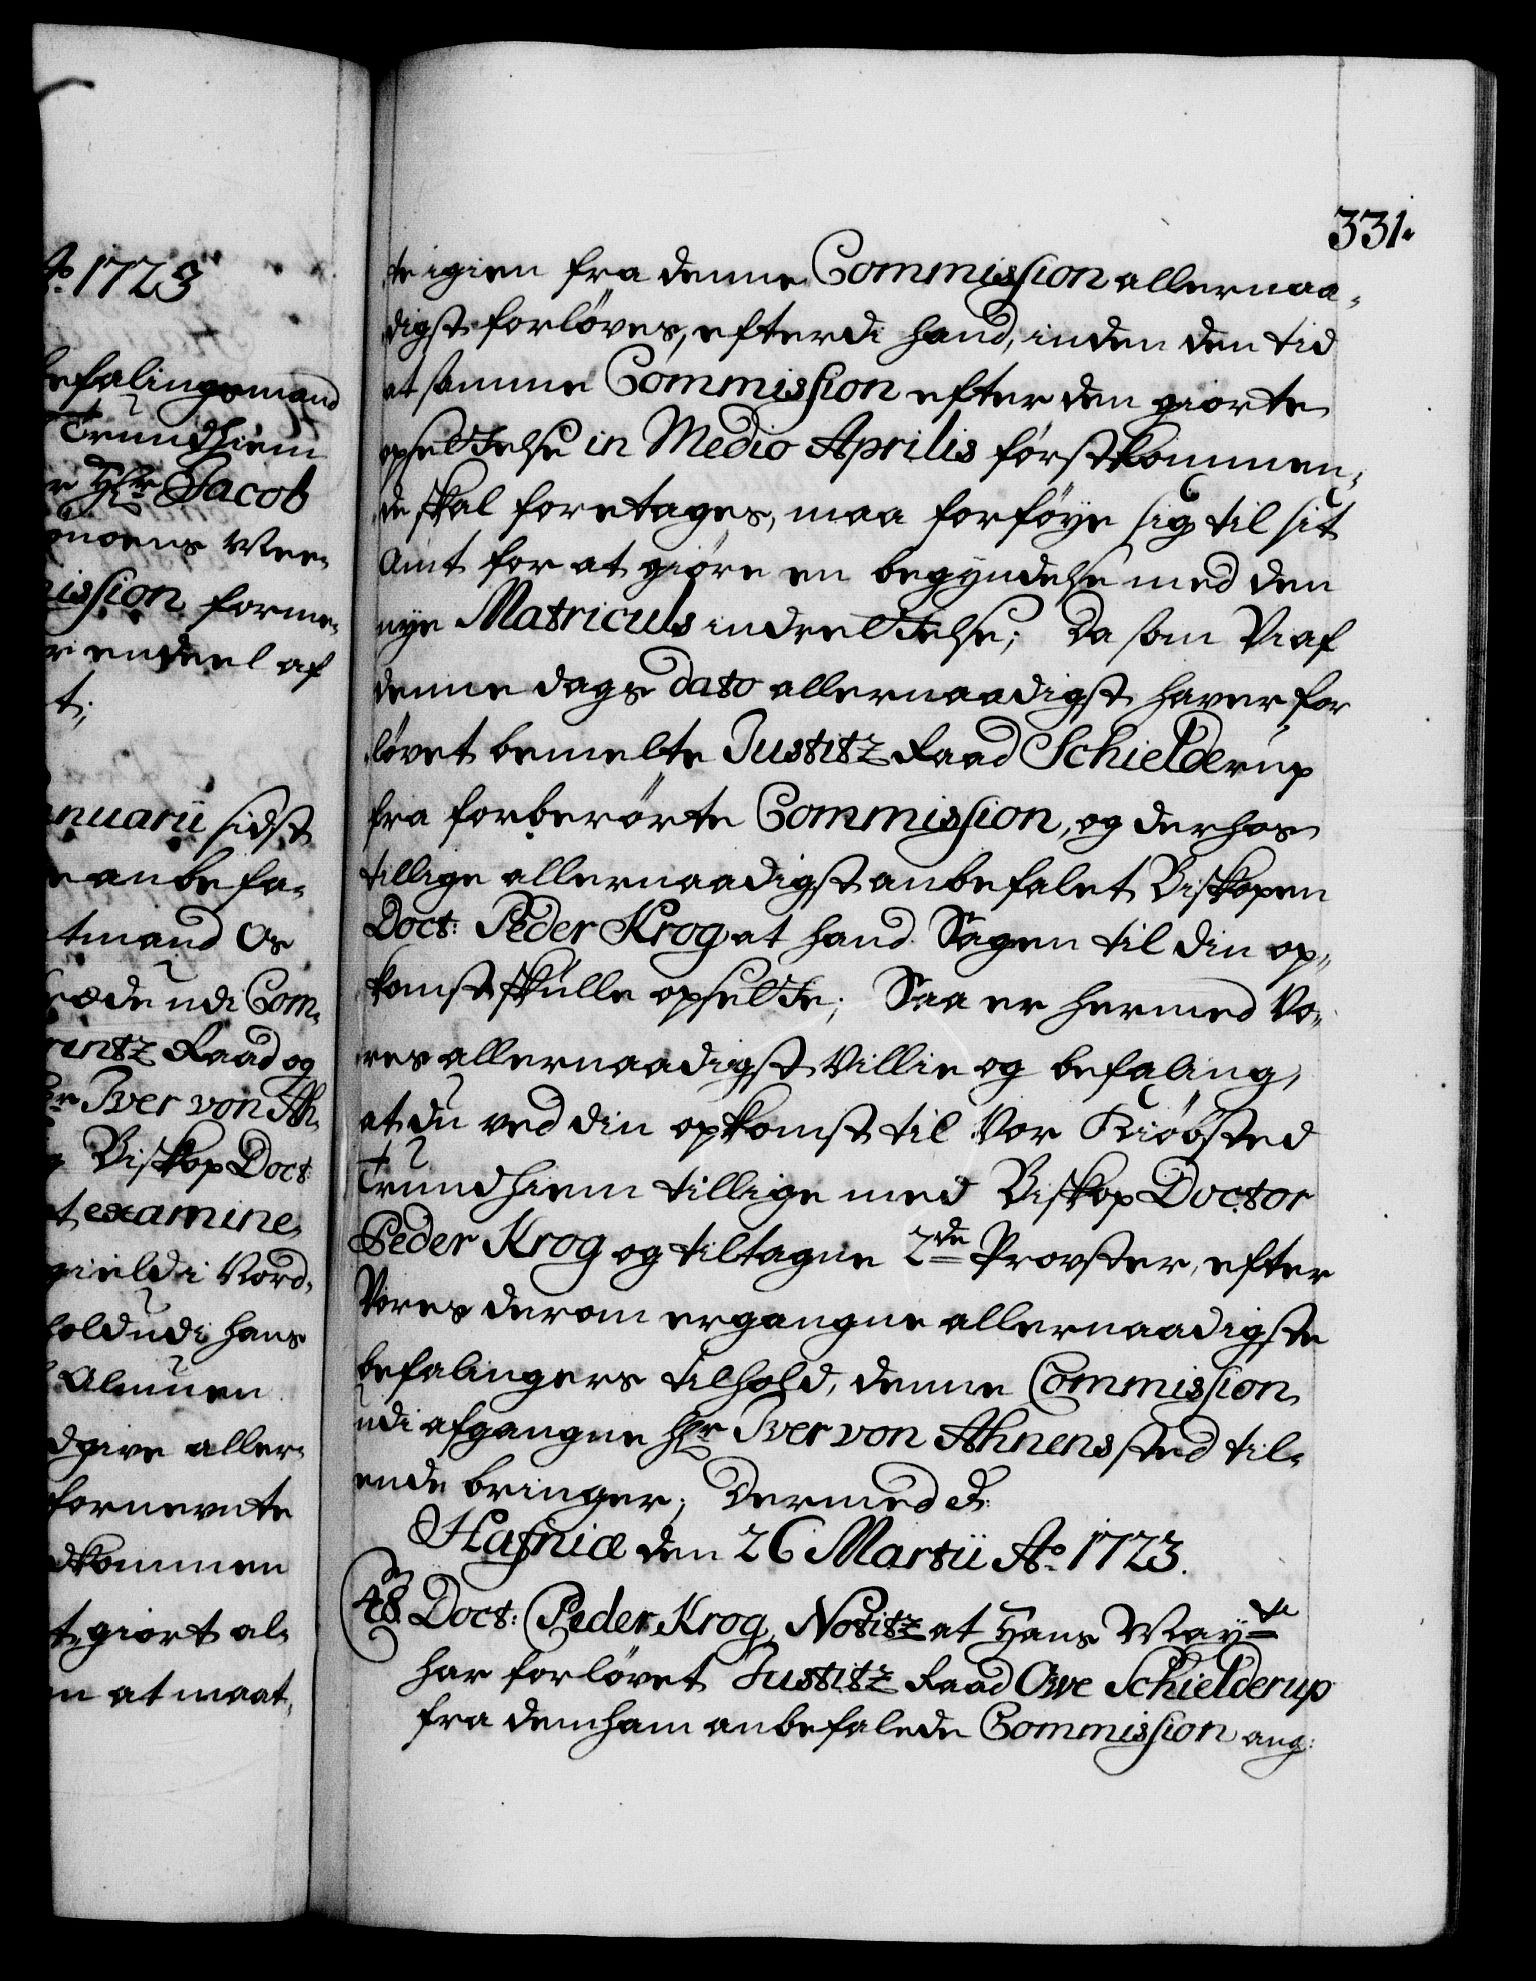 Ao. 1723
befalingsmand
Trundhiem
Hr. Jacob
ission forme-
endeel af
t;
anuarii sidst
anbefa-
tmand Os
udi Com-
Raad og
Hr. Iver von Ah-
Biskop Doct:
t examine-
gield i Nord-
hold udi hans
Almuen
dgive aller-
fornevnte
dkommen
t giort al-
n at maat-
331.
te igien fra denne Commission allernaa-
digst forløves, efterdi hand, inden den tid
at samme Commission efter den giorte
opsettelse in Medio Aprilis førstkommen-
de skal foretages, maa forføye sig til sit
Amt for at giøre en begyndelse med den
nye Matriculs indrettelse; Da som Vi af
denne dags dato allernaadigst haver for
løvet bemelte Justitz Raad Schielderup
fra forberørte Commission, og derhos
tillige allernaadigst anbefalet Biskopen
Doct: Peder Krog at hand Sagen til din op-
komst skulle opsette; Saa er hermed Vo-
res allernaadigst Villie og befaling,
at du ved din opkomst til Vor Kiøbsted
Trundhiem tillige med Biskop Doctor
Peder Krog og tiltagne 2de Provster, efter
Vores derom ergangne allernaadigste
befalingers tilhold, denne Commission
udi afgangne Hr. Iver von Ahnens sted til-
ende bringer; Dermed &:
Hafniæ den 26 Martii Ao. 1723.
48. Doct: Peder Krog Notitz at Hans Mayte
har forløvet Justitz Raad Owe Schielderup
fra dem ham anbefalede Commission ang: